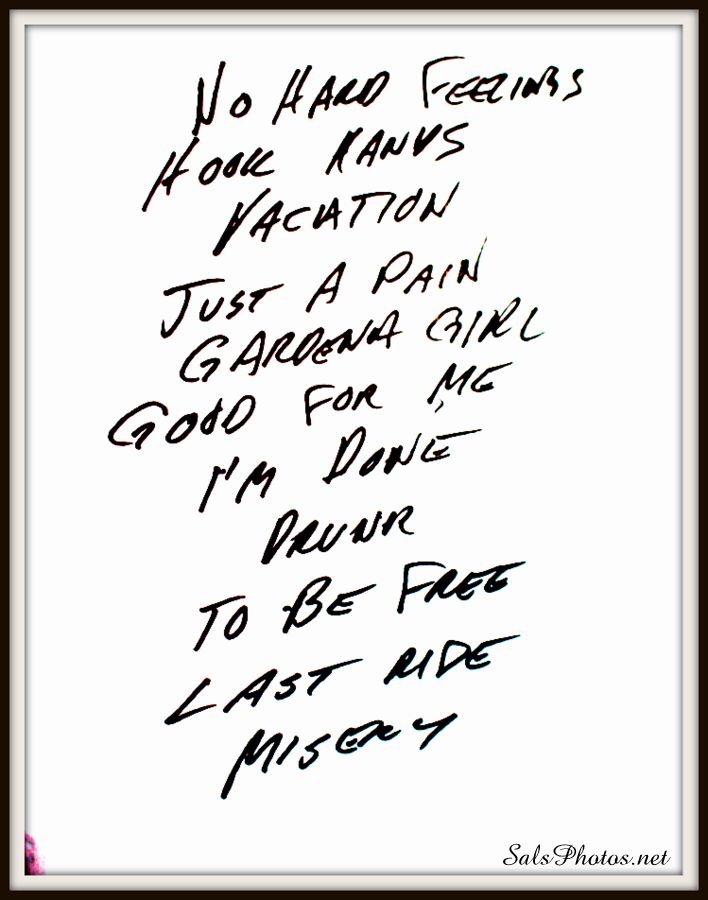 No HARD FEELINGS
HOOK
VACATION
JUST A PAIN
GARDENA GIRL
GOOD FOR ME
I'M DONE
DRUNK
TO BE FREE
LAST RIDE
MISERY
SalsPhotos.net